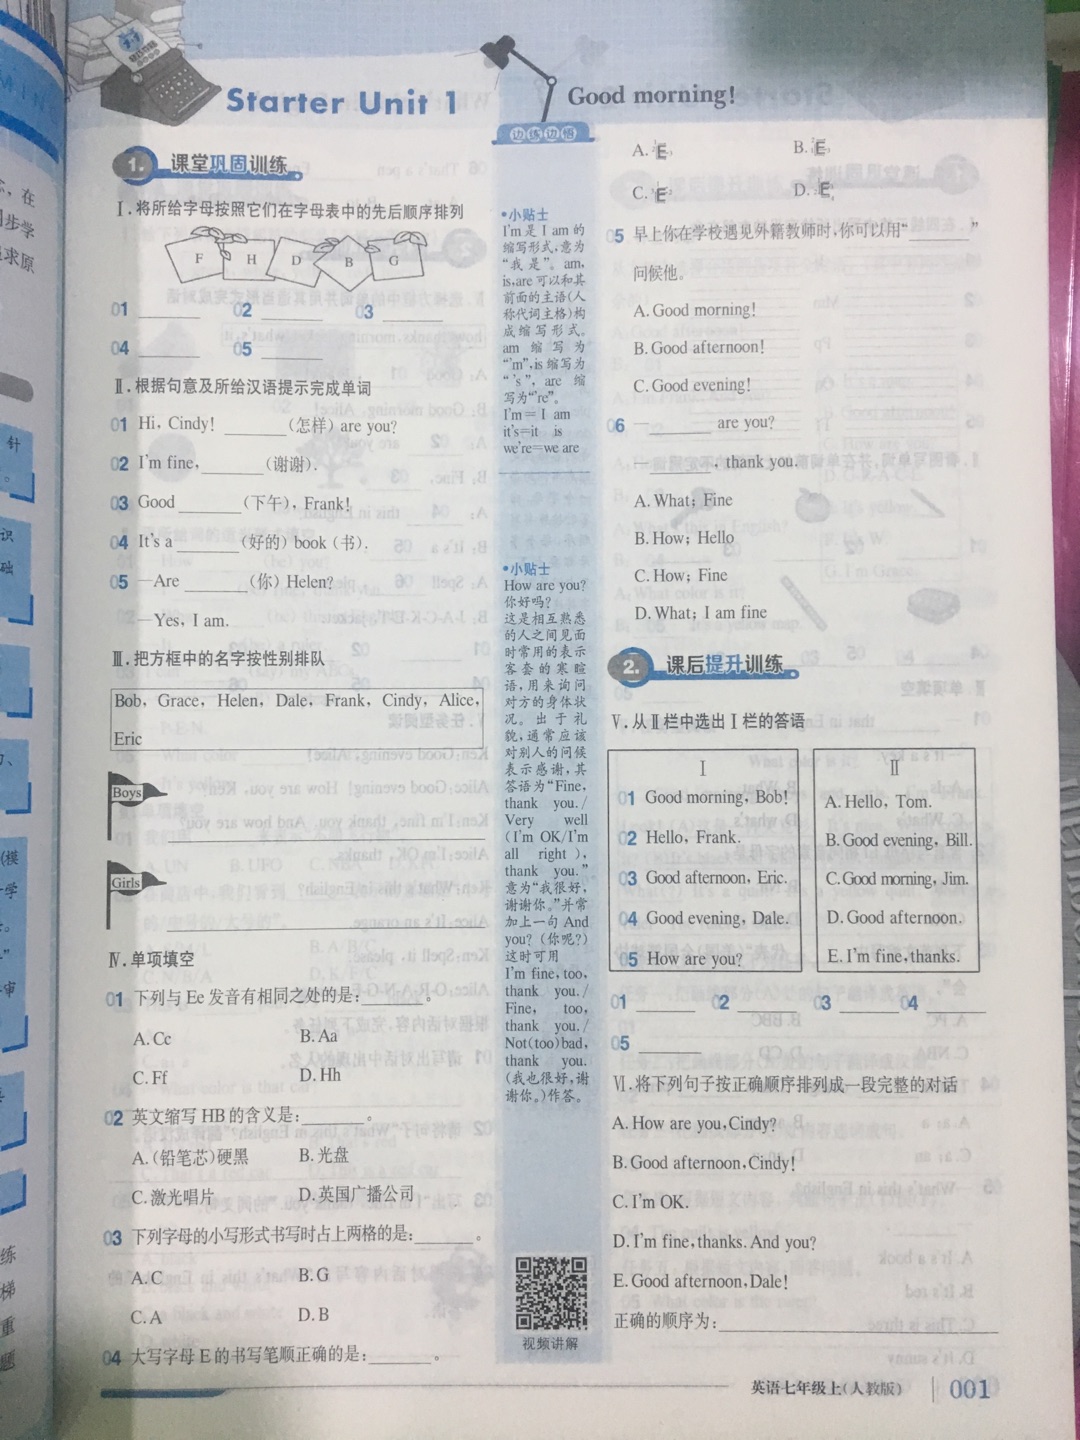 Starter Unit 1
Good morning!
1. 课堂巩固训练
Ⅰ.将所给字母按照它们在字母表中的先后顺序排列
F H D B G
01 ______ 02 ______ 03 ______
04 ______ 05 ______
Ⅱ.根据句意及所给汉语提示完成单词
01 Hi, Cindy! ______(怎样) are you?
02 I'm fine, ______(谢谢).
03 Good ______(下午), Frank!
04 It's a ______(好的) book (书).
05 —Are ______(你) Helen?
—Yes, I am.
Ⅲ.把方框中的名字按性别排队
Bob, Grace, Helen, Dale, Frank, Cindy, Alice,
Eric
Boys
Girls
Ⅳ.单项填空
01 下列与Ee发音有相同之处的是:______。
A.Cc B.Aa
C.Ff D.Hh
02 英文缩写HB的含义是:______。
A.(铅笔芯)硬黑 B.光盘
C.激光唱片 D.英国广播公司
03 下列字母的小写形式书写时占上两格的是:______。
A.C B.G
C.A D.B
04 大写字母E的书写笔顺正确的是:______。
边练边悟
•小贴士
I'm是I am的
缩写形式,意为
“我是”。am,
is,are可以和其
前面的主语(人
称代词主格)构
成缩写形式。
am 缩写为
“'m”,is缩写为
“'s”, are 缩
写为“'re”。
I'm=I am
it's=it is
we're=we are
•小贴士
How are you?
你好吗?
这是相互熟悉
的人之间见面
时常用的表示
客套的寒暄
语,用来询问
对方的身体状
况。出于礼
貌,通常应该
对别人的问候
表示感谢,其
答语为“Fine,
thank you./
Very well
(I'm OK/I'm
all right),
thank you.”
意为“我很好,
谢谢你。”并常
加上一句And
you?(你呢?)
这时可用
I'm fine, too,
thank you./
Fine, too,
thank you./
Not(too)bad,
thank you.
(我也很好,谢
谢你。)作答。
视频讲解
A. E B. E
C. E D. E
05 早上你在学校遇见外籍教师时,你可以用“______”
问候他。
A.Good morning!
B.Good afternoon!
C.Good evening!
06 —______ are you?
—______, thank you.
A.What; Fine
B.How; Hello
C.How; Fine
D.What; I am fine
2. 课后提升训练
Ⅴ.从Ⅱ栏中选出Ⅰ栏的答语
Ⅰ
01 Good morning, Bob!
02 Hello, Frank.
03 Good afternoon, Eric.
04 Good evening, Dale.
05 How are you?
Ⅱ
A.Hello, Tom.
B.Good evening, Bill.
C.Good morning, Jim.
D.Good afternoon.
E.I'm fine, thanks.
01 ______ 02 ______ 03 ______ 04 ______
05 ______
Ⅵ.将下列句子按正确顺序排列成一段完整的对话
A.How are you,Cindy?
B.Good afternoon,Cindy!
C.I'm OK.
D.I'm fine,thanks. And you?
E.Good afternoon,Dale!
正确的顺序为:______
英语七年级上(人教版) 001